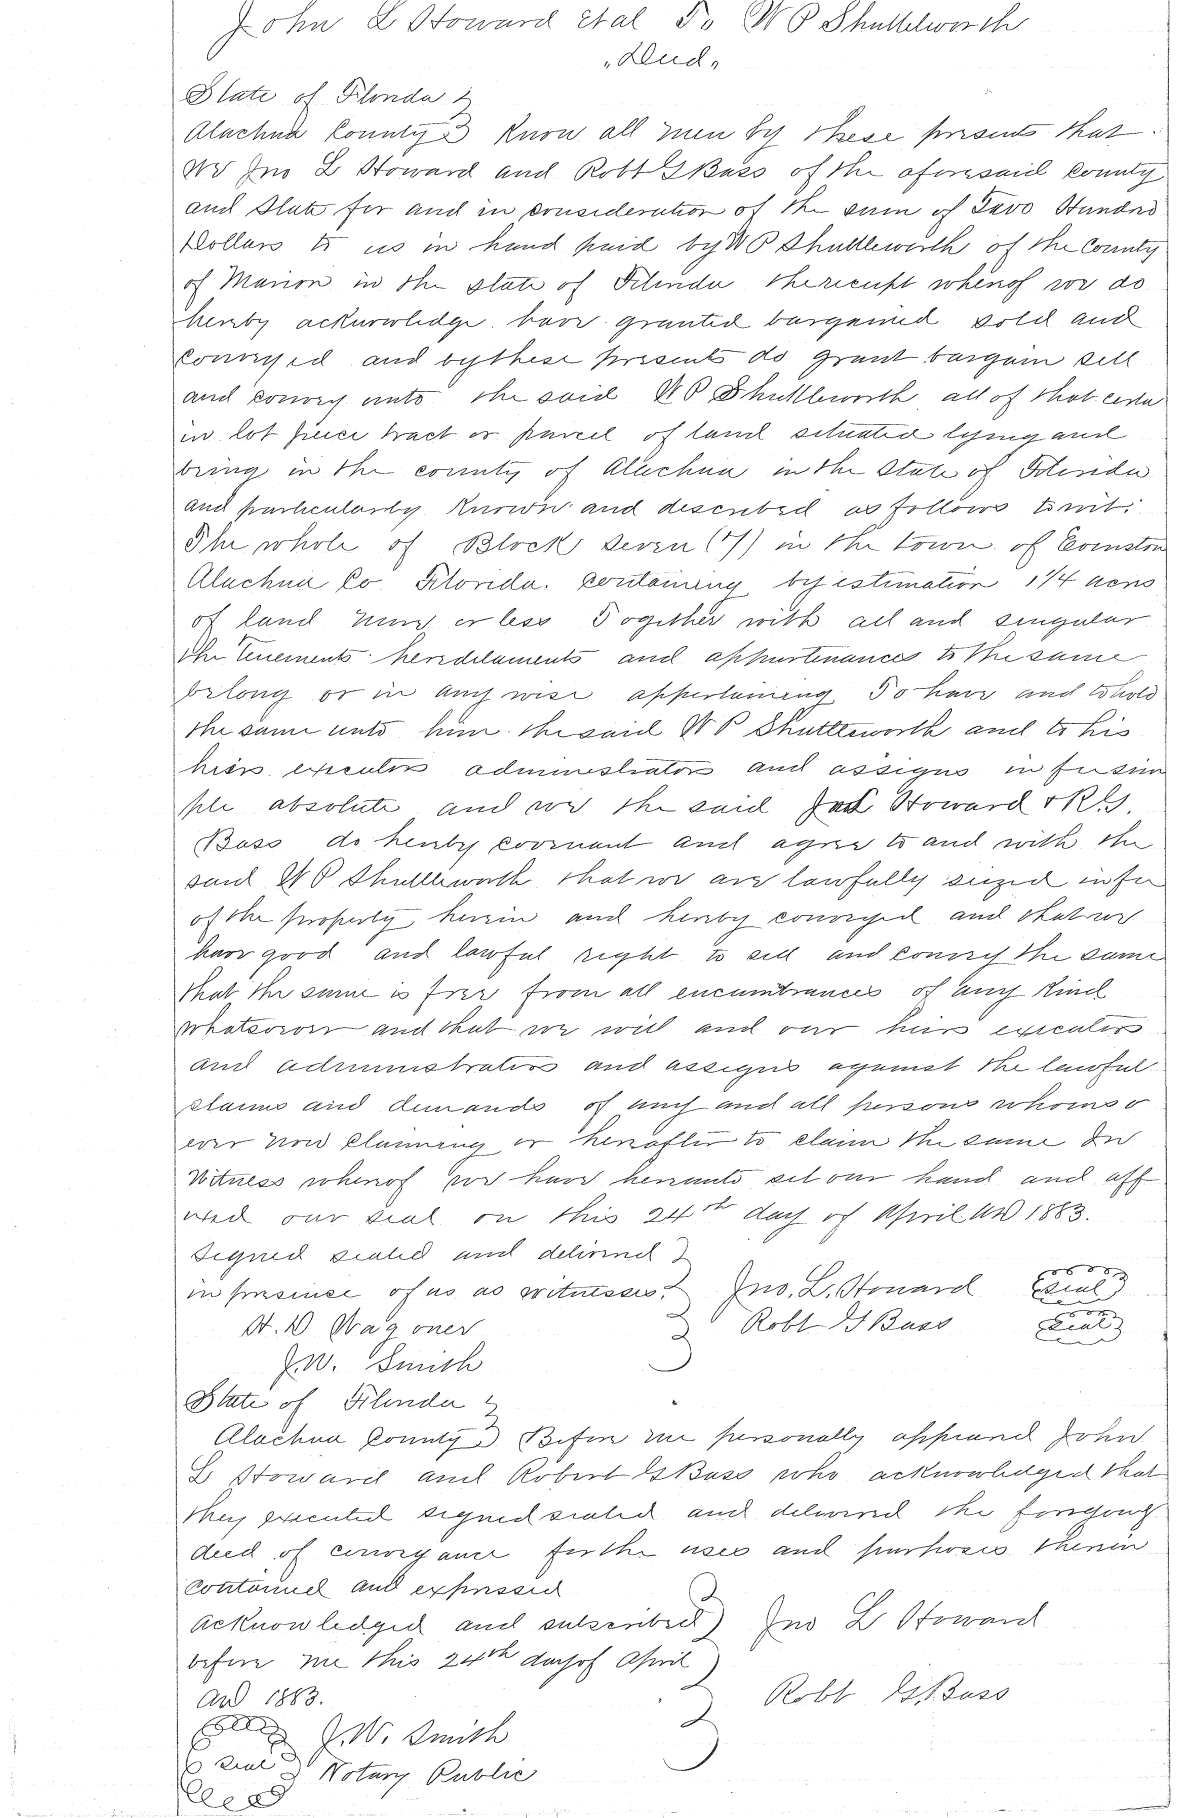 John L Howard et al To W P Shuttleworth
"Deed"
State of Florida
Alachua County Know all men by these presents that
We Jno L Howard and Robt G Bass of the aforesaid County
and State for and in consideration of the sum of Two Hundred
Dollars to us in hand paid by W P Shuttleworth of the County
of Marion in the state of Florida the receipt whereof we do
hereby acknowledge have granted bargained sold and
conveyed and by these presents do grant bargain sell
and convey unto the said W P Shuttleworth all of that certa
in lot piece tract or parcel of land situated lying and
being in the county of Alachua in the State of Florida
and particularly known and described as follows to wit:
The whole of Block Seven (7) in the town of
Alachua Co. Florida. containing by estimation 1 1/4 acres
of land more or less Together with all and singular
the Tenements heredilaments and appurtenances to the same
belong or in any wise appertaining To have and to hold
the same unto him the said W P Shuttleworth and to his
heirs executors administrators and assigns in fee sim
ple absolute and we the said Jno L Howard & R. G.
Bass do hereby covenant and agree to and with the
said W P Shuttleworth that we are lawfully seized in fee
of the property herein and hereby conveyed and that we
have good and lawful right to sell and convey the same
that the same is free from all encumbrances of any Kind
whatsoever and that we will and our heirs executors
and administrators and assigns against the lawful
claims and demands of any and all persons whomso
ever now claiming or hereafter to claim the same In
Witness whereof we have hereunto set our hand and aff
ixed our seal on this 24th day of April AD 1883.
Signed sealed and delivered
in presence of us as witnesses. Jno. L. Howard Seal
H. D Wagoner Robt G Bass Seal
J. W. Smith
State of Florida
Alachua County Before me personally appeared John
L Howard and Robert G Bass who acknowledged that
they executed signed sealed and delivered the foregoing
deed of conveyance for the uses and purposes therein
contained and expressed
Acknowledged and subscribed Jno L Howard
before me this 24th day of April
AD 1883. Robt G. Bass
J. W. Smith
Seal Notary Public